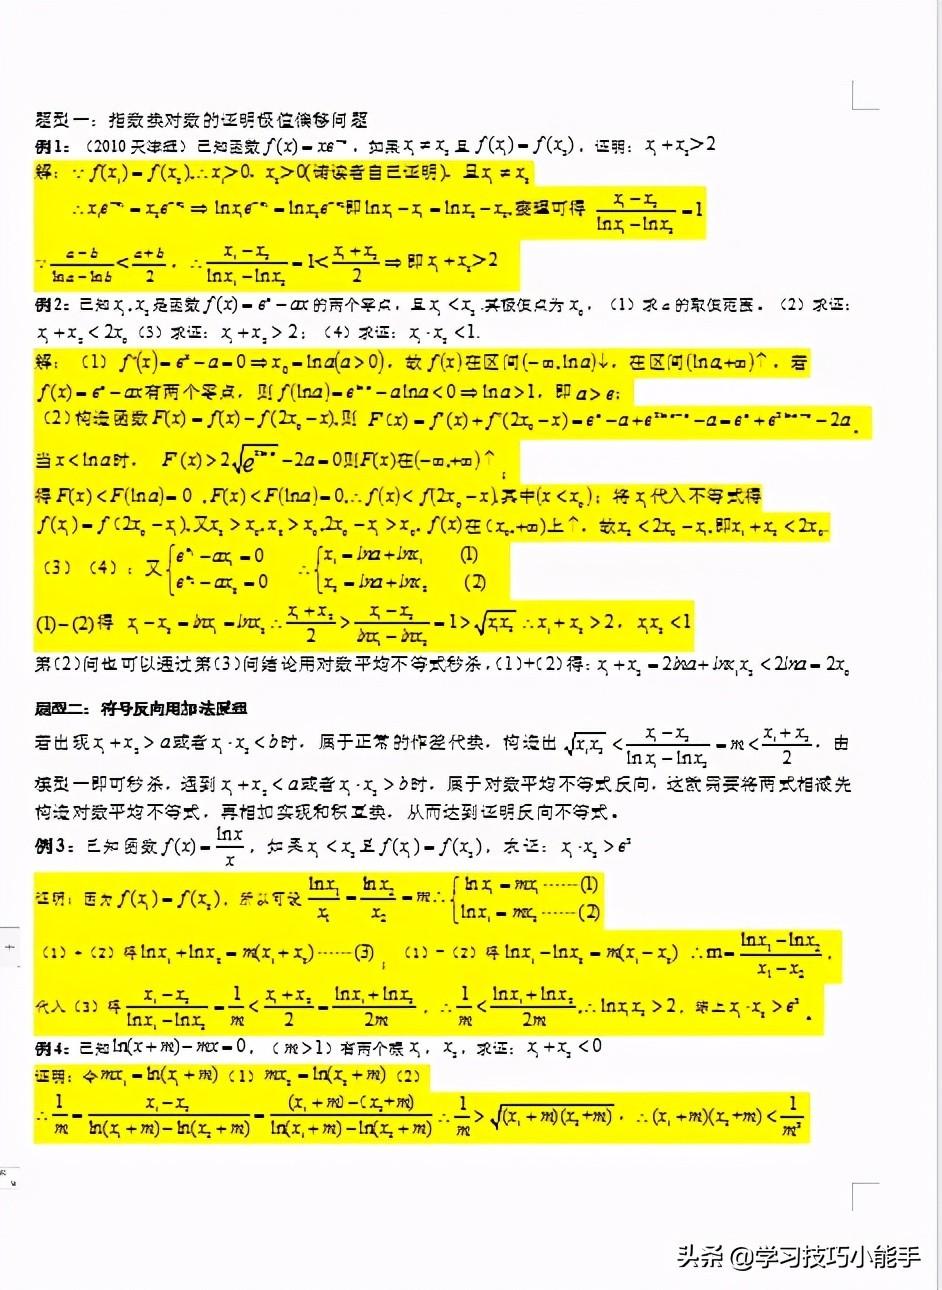 题型一：指数换对数的证明极值偏移问题
例1：（2010天津理）已知函数f(x)=xe⁻ˣ，如果x₁≠x₂且f(x₁)=f(x₂)，证明：x₁+x₂>2
解：∵f(x₁)=f(x₂).∴x₁>0. x₂>0(请读者自己证明)，且x₁≠x₂
∴x₁e^(-x₁)=x₂e^(-x₂)⇒lnx₁e^(-x₁)=lnx₂e^(-x₂)即lnx₁-x₁=lnx₂-x₂.变理可得 (x₁-x₂)/(lnx₁-lnx₂)=1
∵(a-b)/(lna-lnb)<(a+b)/2，∴(x₁-x₂)/(lnx₁-lnx₂)=1<(x₁+x₂)/2⇒即x₁+x₂>2
例2：已知x₁.x₂是函数f(x)=eˣ-ax的两个零点，且x₁<x₂.其极值点为x₀，（1）求a的取值范围。（2）求证：
x₁+x₂<2x₀（3）求证：x₁+x₂>2；（4）求证：x₁·x₂<1.
解：（1）f'(x)=eˣ-a=0⇒x₀=lna(a>0)，故f(x)在区间(-∞.lna)↓，在区间(lna,+∞)↑，若
f(x)=eˣ-ax有两个零点，则f(lna)=e^(lna)-alna<0⇒lna>1，即a>e；
（2）构造函数F(x)=f(x)-f(2x₀-x).则 F'(x)=f'(x)+f'(2x₀-x)=eˣ-a+e^(2lna-x)-a=eˣ+e^(2lna-x)-2a。
当x<lna时， F'(x)>2√(e^(2lna))-2a=0则F(x)在(-∞.+∞)↑；
得F(x)<F(lna)=0 ,F(x)<F(lna)=0.∴f(x)<f(2x₀-x).其中(x<x₀)；将x₁代入不等式得
f(x₁)=f(2x₀-x₁).又x₂>x₀.x₂>x₀.2x₀-x₁>x₀. f(x)在(x₀.+∞)上↑，故x₂<2x₀-x₁.即x₁+x₂<2x₀.
（3）（4）：又{e^(x₁)-ax₁=0 ∴{x₁=lna+lnx₁ (1)
e^(x₂)-ax₂=0 x₂=lna+lnx₂ (2)
(1)-(2)得 x₁-x₂=lnx₁=lnx₂∴(x₁+x₂)/2>(x₁-x₂)/(lnx₁-lnx₂)=1>√(x₁x₂) ∴x₁+x₂>2，x₁x₂<1
第(2)问也可以通过第(3)问结论用对数平均不等式秒杀，(1)+(2)得：x₁+x₂=2lna+lnx₁x₂<2lna=2x₀
题型二：符号反向用加法原理
若出现x₁+x₂>a或者x₁·x₂<b时，属于正常的作差代换，构造出√(x₁x₂)<(x₁-x₂)/(lnx₁-lnx₂)=m<(x₁+x₂)/2，由
模型一即可秒杀，遇到x₁+x₂<a或者x₁·x₂>b时，属于对数平均不等式反向，这就需要将两式相减先
构造对数平均不等式，再相加实现和积互换，从而达到证明反向不等式。
例3：已知函数f(x)=lnx/x，如果x₁<x₂且f(x₁)=f(x₂)，求证：x₁·x₂>e²
证明：因为f(x₁)=f(x₂)，所以可设lnx₁/x₁=lnx₂/x₂=m∴{lnx₁=mx₁……(1)
lnx₁=mx₂……(2)
（1）+（2）得lnx₁+lnx₂=m(x₁+x₂)……(3)；（1）-（2）得lnx₁-lnx₂=m(x₁-x₂) ∴m=(lnx₁-lnx₂)/(x₁-x₂)，
代入（3）得(x₁-x₂)/(lnx₁-lnx₂)=1/m<(x₁+x₂)/2=(lnx₁+lnx₂)/2m，∴1/m<(lnx₁+lnx₂)/2m.∴lnx₁x₂>2，综上x₁·x₂>e²。
例4：已知ln(x+m)-mx=0，（m>1）有两个根x₁，x₂，求证：x₁+x₂<0
证明：令mx₁=ln(x₁+m)（1）mx₂=ln(x₂+m)（2）
∴1/m=(x₁-x₂)/(ln(x₁+m)-ln(x₂+m))=((x₁+m)-(x₂+m))/(ln(x₁+m)-ln(x₂+m))∴1/m>√((x₁+m)(x₂+m))，∴(x₁+m)(x₂+m)<1/m²
头条 @学习技巧小能手